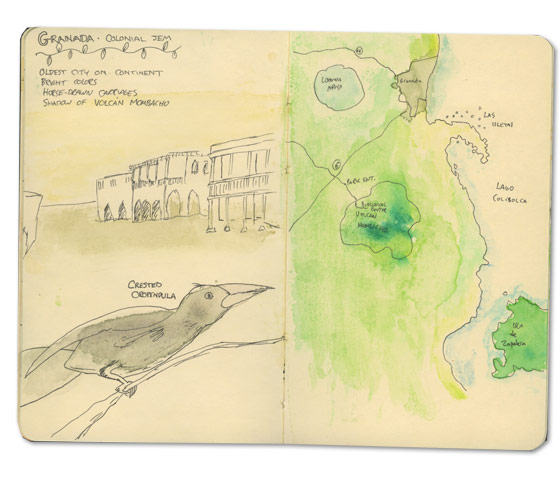 GRANADA · COLONIAL JEM
OLDEST CITY ON CONTINENT
BRIGHT COLORS
HORSE-DRAWN CARRIAGES
SHADOW OF VOLCAN MOMBACHO
CRESTED
OROPENDULA
Granada
LAS
ISLETAS
LAGO
COCIBOLCA
PARK ENT.
BIOLOGICAL CENTRE
VOLCAN
MOMBACHO
ISLA
de
Zapatera